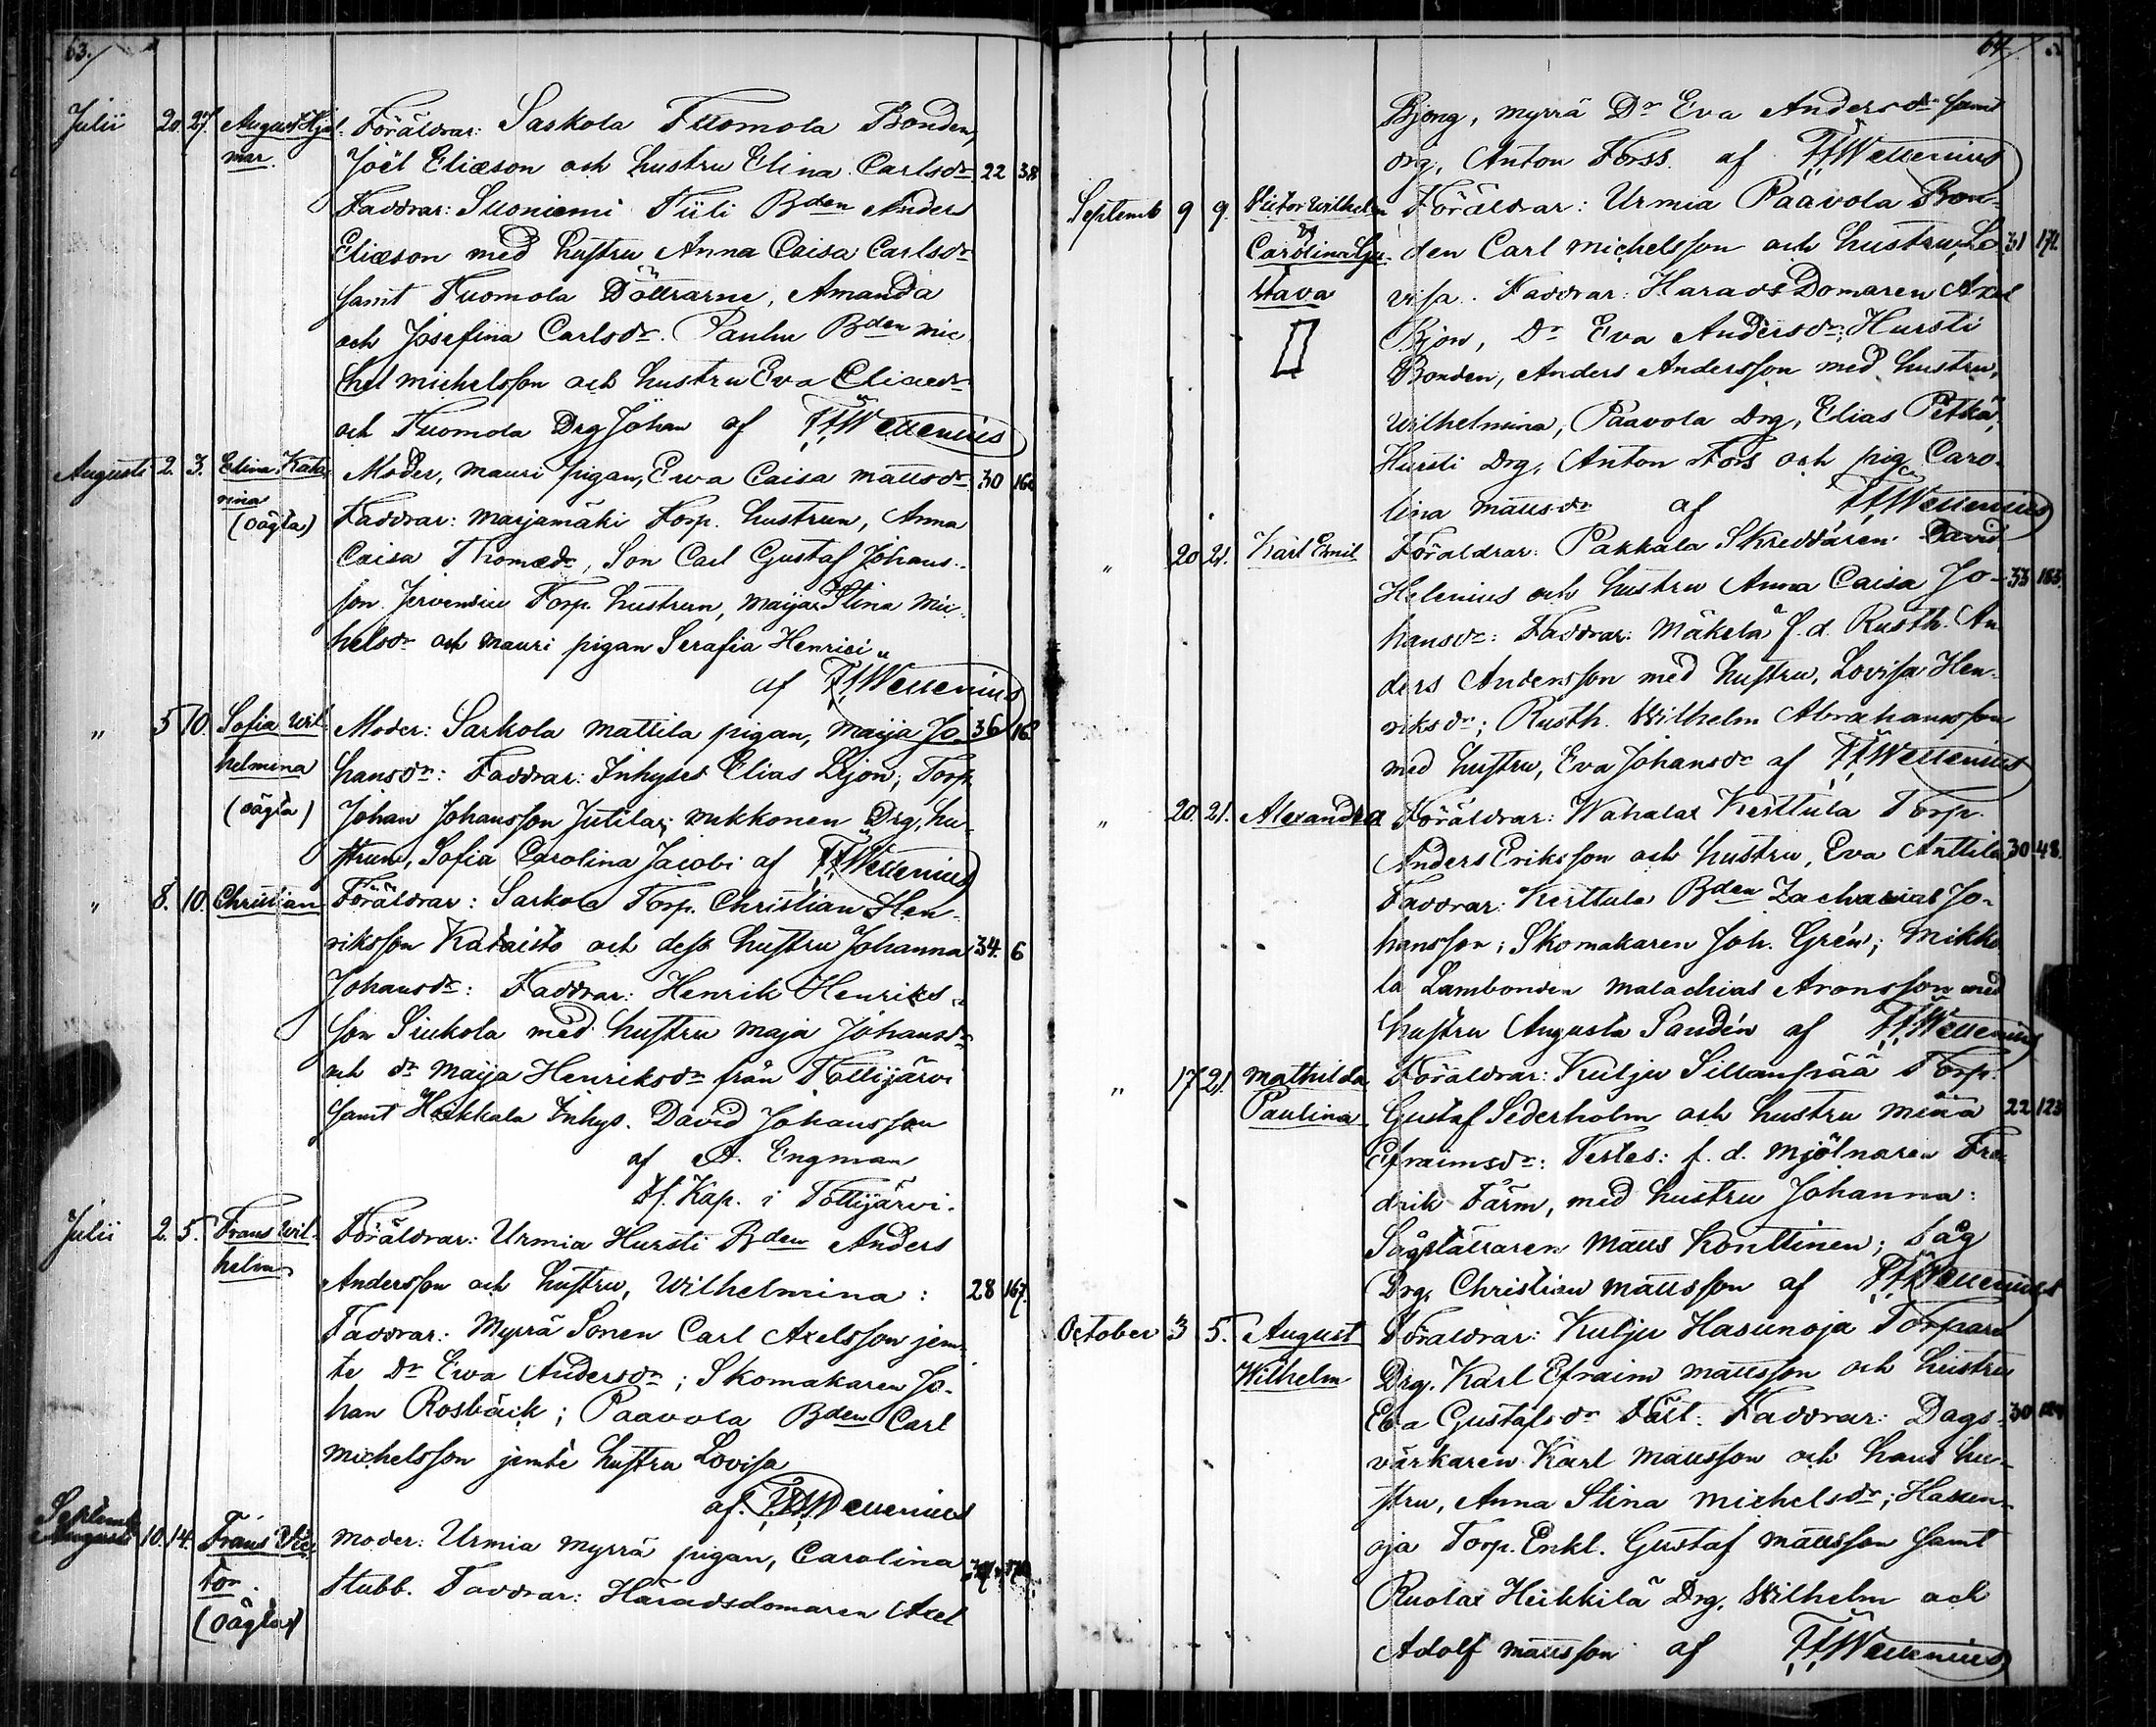 63.
Julii 20. 27. August Hjal- Föräldrar: Saskola Tuomola Bonden,
mar. Joël Eliæson och hustru Elina Carlsdr 22 38
Faddrar: Suoniemi Tiili Bden Anders
Eliæson med hustru Anna Caisa Carlsdr
samt Tuomola Döttrarne, Amanda
och Josefina Carlsdr. Bden Mic
hel Michelsson och hustru Eva Eliaedr
och Tuomola Drg Johan af
Augusti 2. 3. Elina Kata- Moder, Mauri pigan, Ewa Caisa Mattsdr 30
rina Faddrar: Marjamäki Torp. hustrun, Anna
(oägta) Caisa Thomædr, Son Carl Gustaf Johans-
son Torp. hustrun, Maija Stina Mic
helsdr och Mauri pigan Serafia Henrici
af
" 5 10. Sofia Wil- Moder: Sarkola Mattila pigan, Maija Jo- 36
helmina hansdr: Faddrar: Inhyses Elias Lejon; Torp.
(oägta) Johan Johansson Jutila; Mukkonen Drg. hu-
strun, Sofia Carolina Jacobi af
" 8. 10. Christian Föräldrar: Sarkola Torp. Christian Hen-
riksson Kataisto och dess hustru Johanna 34. 6
Johansdr: Faddrar: Henrik Henriks-
son Siukola med hustru Maja Johansdr
och dr Maija Henriksdr från Tottijärvi
samt Heikkala Inhys. David Johansson
af A. Engman
Kap. i Tottijärvi.
Julii 2. 5. Frans Wil- Föräldrar: Urmia Hursti Bden Anders
helm Andersson och hustru, Wilhelmina: 28 167.
Faddrar: Myrrä Sonen Carl Axelsson jem-
te Dr Ewa Andersdr; Skomakaren Jo-
han Rosbäck; Paavola Bden Carl
Michelsson jemte hustru Lovisa
af
Septemb
Augusti 10. 14. Frans Vic- Moder: Urmia Myrrä pigan, Carolina
tor. Stubb. Faddrar: Häradsdomaren Axel
(oägta)
64.
Bjong, Myrrä Dr Eva Andersdr samt
drg, Anton Forss af
Septemb 9 9. Victor Wilhelm Föräldrar: Urmia Paavola Bon-
och
Carolina Gu- den Carl Michelsson och hustru Lo- 31 172.
stava visa. Faddrar: Harads Domaren Axel
Bjon, Dr Eva Andersdr; Hursti
Bonden, Anders Andersson med hustru,
Wilhelmina, Paavola Drg, Elias Pitkä,
Hursti Drg, Anton Fors och pig. Caro-
lina Mattsdr af
" 20 21. Karl Emil Föräldrar: Pakkala Skreddaren David
Helenius och hustru Anna Caisa Jo- 33 183.
hansdr: Faddrar: Mäkelä f.d. Rusth. An-
ders Andersson med hustru, Lovisa Hen-
riksdr; Rusth. Wilhelm Abrahamsson
med hustru, Eva Johansdr af
" 20. 21. Alexandra Föräldrar: Wahalax Kerttula Torp.
Anders Eriksson och hustru, Eva Anttila 30 48.
Faddrar: Kerttula Bden Zacharias Jo-
hansson; Skomakaren Joh. Grén; Mikko
la Lambonden Malachias Aronsson med
hustru Augusta Sandén af
" 17 21. Mathilda Föräldrar: Kulju Sillanpää Torp.
Paulina Gustaf Sederholm och hustru Miña 22 123
Efraimsdr: Testes: f.d. Mjölnaren Fre-
drik Färm, med hustru Johanna:
Sågställaren Matts Konttinen; såg
Drg. Christian Mattsson af
October 3 5. August Föräldrar: Kulju Hasunoja Torpare
Wilhelm Drg. Karl Efraim Mattsson och hustru
Eva Gustafsdr Färl. Faddrar: Dags- 30
värkaren Karl Mattsson och hans hu-
stru, Anna Stina Michelsdr; Hasun-
oja Torp. Enkl. Gustaf Mattsson samt
Ruolax Heikkilä Drg. Wilhelm och
Adolf Mattsson af